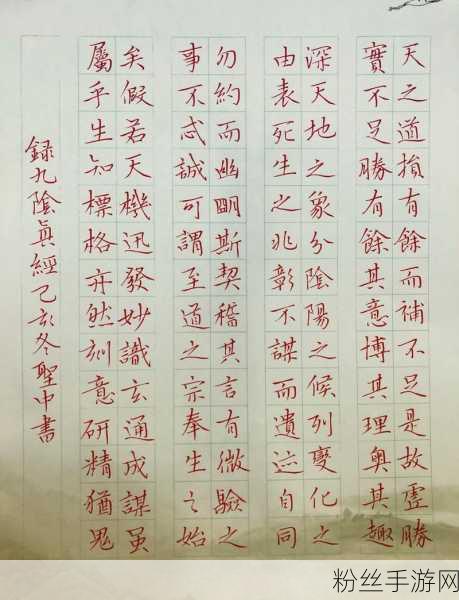 天之道損有餘而補不足是故虛勝
實不足勝有餘其意博其理奧其趣
深天地之象分陰陽之候列變化之
由表死生之兆彰不謀而遺迹自同
勿約而幽明斯契稽其言有微驗之
事不忒誠可謂至道之宗奉生之始
矣假若天機迅發妙識玄通成謀虽
屬乎生知標格亦然刻意研精猶鬼
錄九陰眞經己亥冬聖中書
粉丝手游网